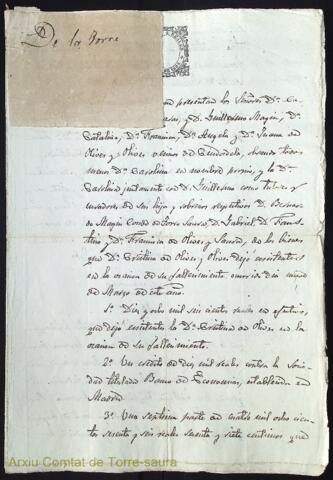 De la Torre
presentan los Señores Dª Ca-
y D. Guillermo Magin, Dª
Catalina, Dª Francisca, Dª Angela y Dª Juana de
Olives y Olives vecinos de Ciudadela, obrando todos
menos Dª Carolina en nombre propio, y la Dª
Carolina juntamente con D. Guillermo como tutores y
curadores de sus hijos y sobrinos respectivos D. Bernardo
de Magin Conde de Torre Saura, D. Gabriel, D. Faus-
tino y Dª Francisca de Olives y Saura, de los bienes
que Dª Cristina de Olives y Olives dejó existentes
en la ocasion de su fallecimiento, ocurrido dia
de Marzo de este año.
1º Diez y ocho mil seis cientos reales en efectivo,
que dejó existentes la Dª Cristina de Olives en la
ocasion de su fallecimiento.
2º Un credito de diez mil reales contra la Socie-
dad titulada Banco de Economias, establecida en
Madrid
3º Una septima parte de cuatro mil ocho cien-
tos sesenta y seis reales sesenta y siete centimos que
Arxiu Comtat de Torre-saura